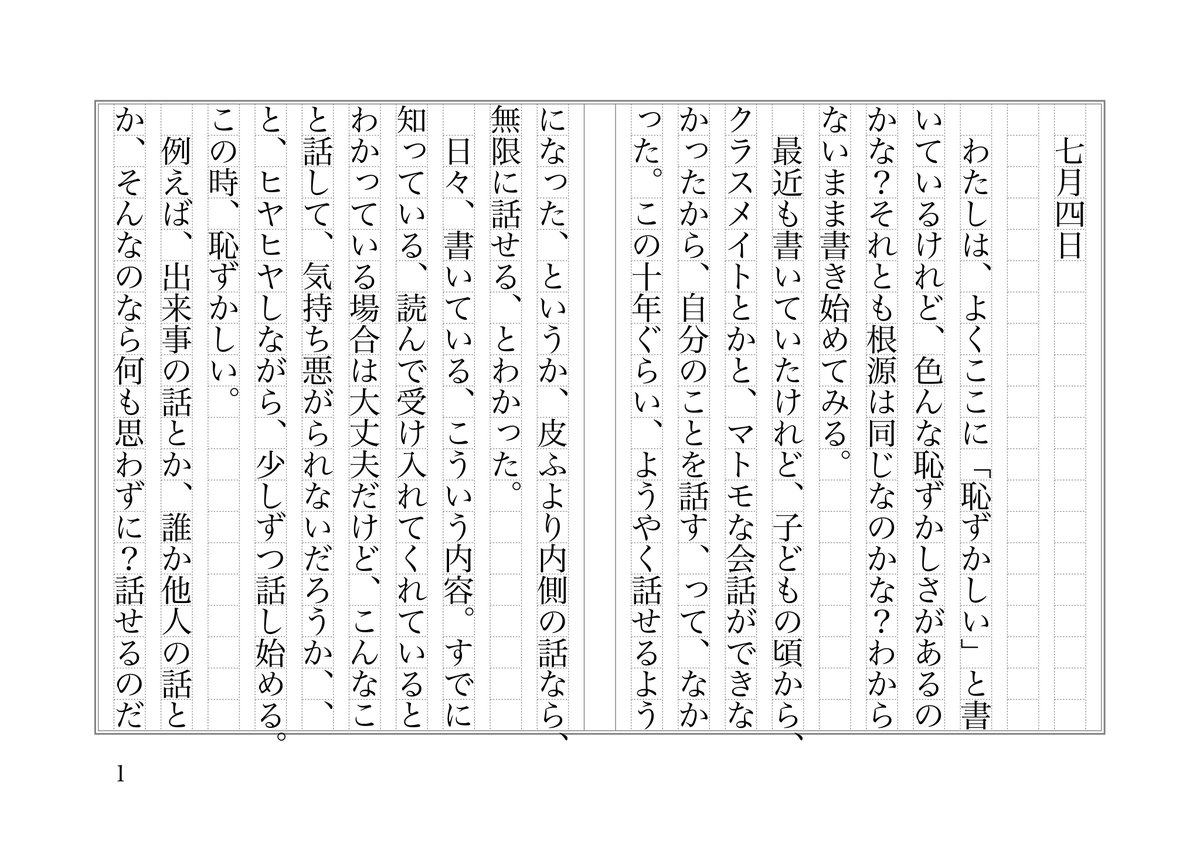 七月四日
わたしは、よくここに「恥ずかしい」と書
いているけれど、色んな恥ずかしさがあるの
かな？それとも根源は同じなのかな？わから
ないまま書き始めてみる。
最近も書いていたけれど、子どもの頃から、
クラスメイトとかと、マトモな会話ができな
かったから、自分のことを話す、って、なか
った。この十年ぐらい、ようやく話せるよう
になった、というか、皮ふより内側の話なら、
無限に話せる、とわかった。
日々、書いている、こういう内容。すでに
知っている、読んで受け入れてくれていると
わかっている場合は大丈夫だけど、こんなこ
と話して、気持ち悪がられないだろうか、、
と、ヒヤヒヤしながら、少しずつ話し始める。
この時、恥ずかしい。
例えば、出来事の話とか、誰か他人の話と
か、そんなのなら何も思わずに？話せるのだ
1